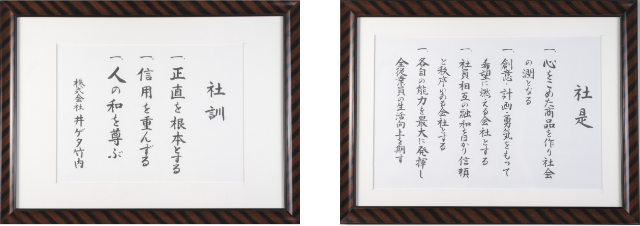 社訓
一、正直を根本とする
一、信用を重んずる
一、人の和を尊ぶ
株式会社 井ゲタ竹内
社是
一、心をこめた商品を作り社会
の潤となる
一、創意と計画と勇気をもって
希望に燃える会社とする
一、社員相互の融和をはかり信頼
と秩序ある会社とする
一、各自の能力を最大に発揮し
全従業員の生活向上を期す